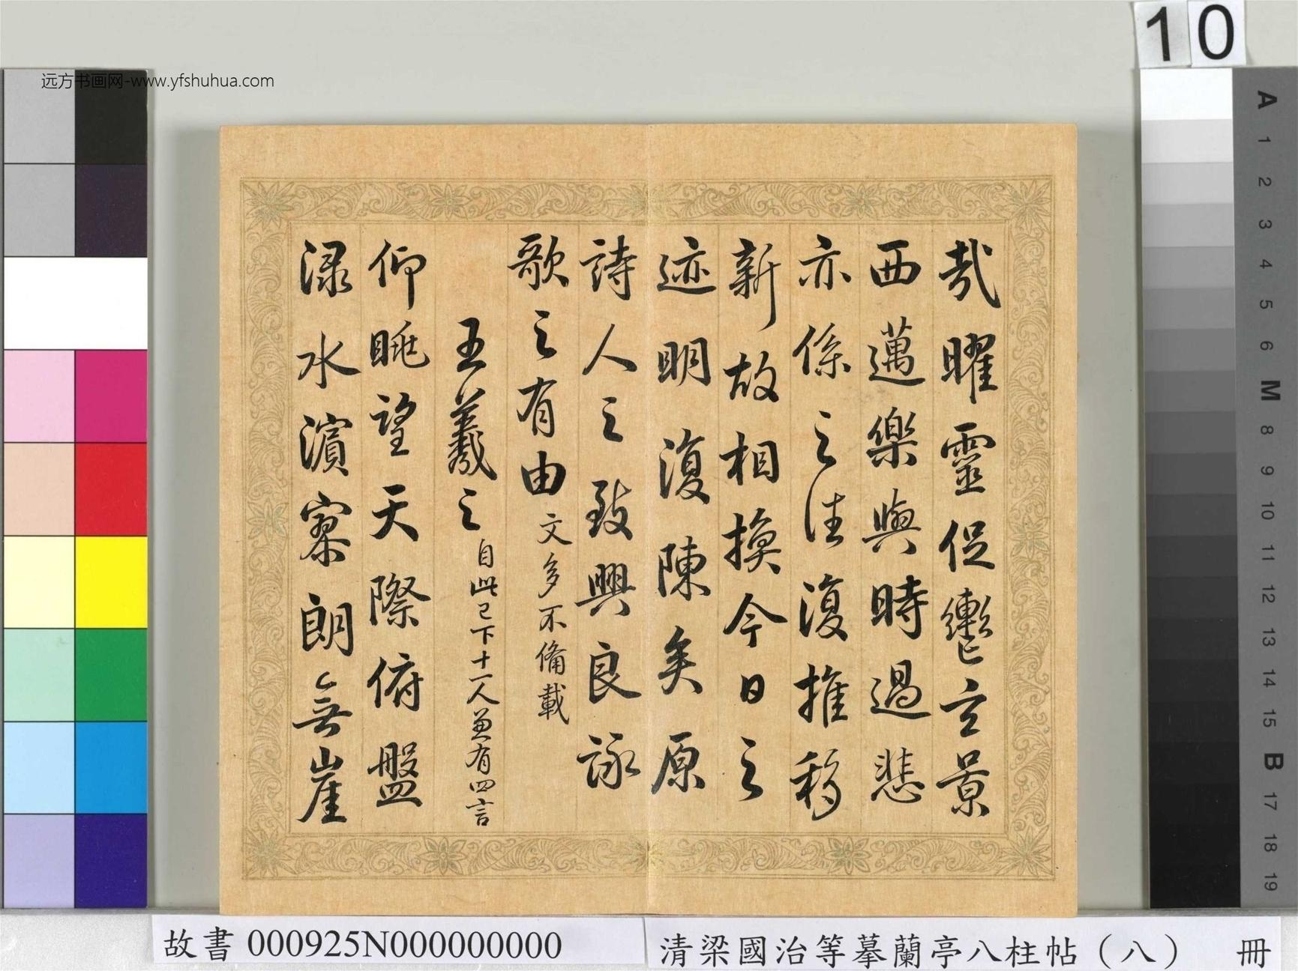 哉曜靈促轡玄景
西邁樂與時過悲
亦係之往復推移
新故相換今日之
迹明復陳矣原
詩人之致興良詠
歌之有由文多不備載
王羲之自此已下十一人兼有四言
仰眺望天際俯盤
淥水濱寥朗無崖
远方书画网-www.yfshuhua.com
10
A
1
2
3
4
5
6
M
8
9
10
11
12
13
14
15
B
17
18
19
故書 000925N000000000
清梁國治等摹蘭亭八柱帖（八） 冊